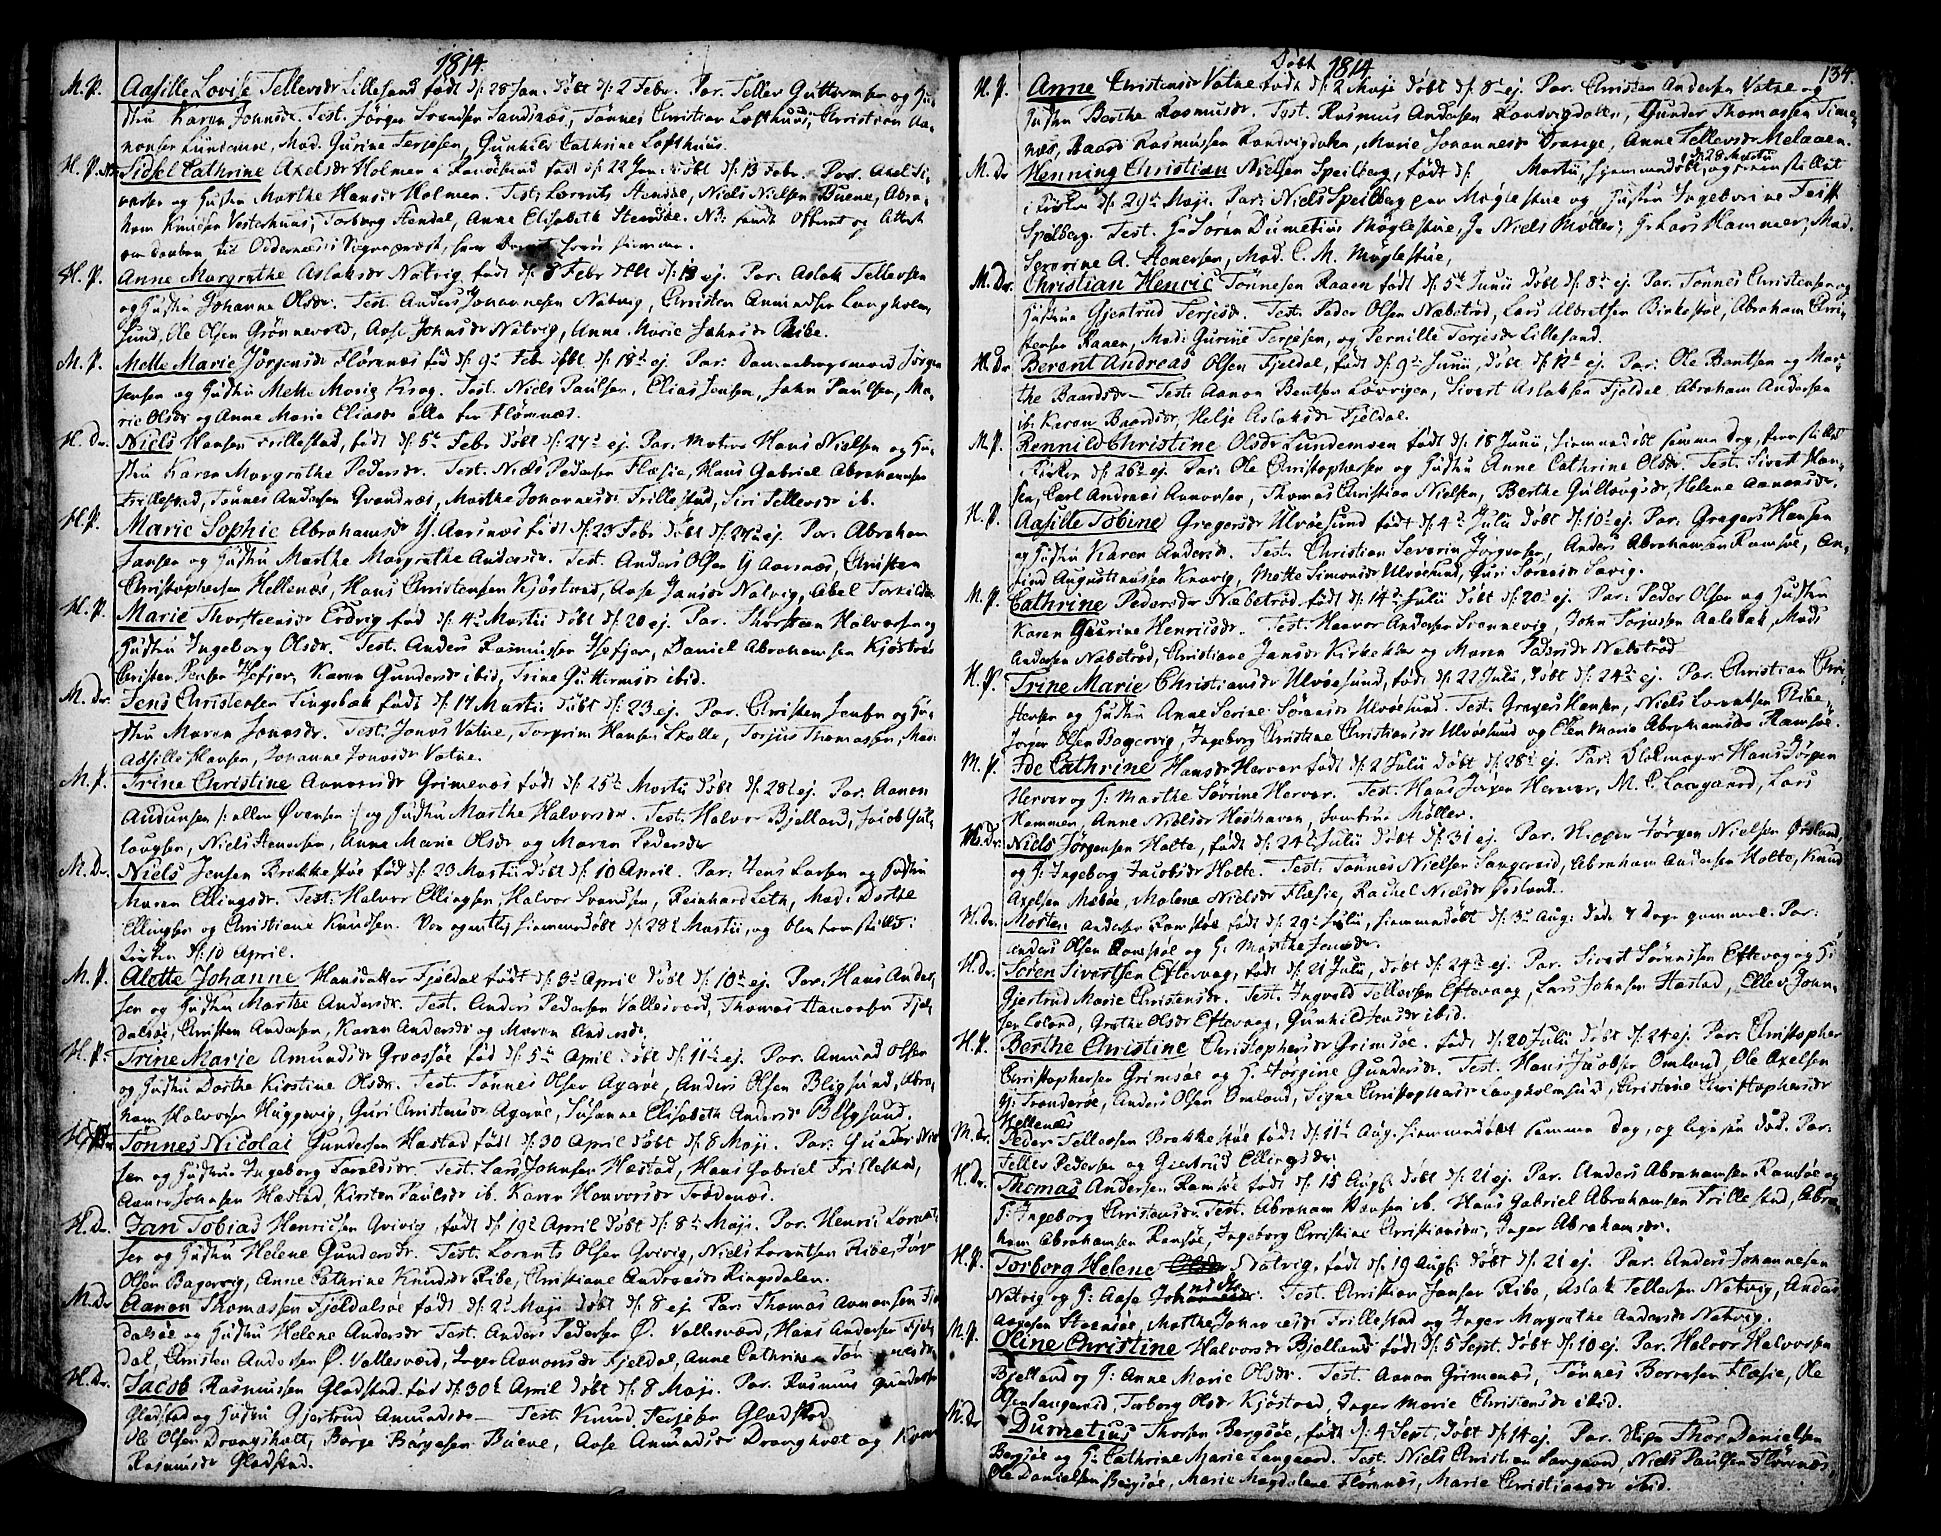 1814.
M. P. Aasille Lovise Tellevsdr Lillesand født d. 28 Jan. døbt d: 2 Febr. Par. Tellev Guttormsen og Hu-
stru Karen Jonsdr. Test. Jörgen Svendsen Sandsnæs, Tönnes Christian Lofthuus, Christian Aa-
nonsen Lundemoe, Mad. Gurine Terjesen, Gunhild Cathrine Lofthuus.
H. P. Sidsel Cathrine Axelsdr Holmen født d: 22 Jan. døbt d: 13 Febr. Par. Axel
og Hustru Marthe Hansdr Holmen. Test: Lorents Stendæ, Niels Nielsen Buene, Abra-
ham Knudsen Vesterhuus, Torborg Stendal, Anne Elisabeth Stendæ. NB: sendt Attest
om daaben til Oddernæs Sognepræst,
H. P. Anne Margrethe Aslaksdr Natvig født d: 8 Febr døbt d: 13 ej. Par: Aslak Tellevsen
og Hustru Johanne Olsdr. Test. Anders Johannesen Natvig, Christen Anundsen Langholm-
sund, Ole Olsen Grønnevold, Aase Johnsdr Natvig, Anne Marie Jahnsdr Ribe.
M. P. Mette Marie Jörgensdr Flörenæs fød d: 9de Febr døbt d: 18de ej. Par: Dannebrogsmand Jörgen
Jensen og Hustru Mette Marie Krog. Test. Niels Paulsen, Elias Jensen, John Paulsen, Ma-
rie Olsdr og Anne Marie Eliasdr alle fra Flörnæs.
H. Dr. Niels Hansen Trillestad, født d: 5te Febr døbt d: 27de ej. Par. Matros Hans Nielsen og Hu-
stru Karen Margrethe Pedersdr. Test. Niels Pedersen Flæsie, Hans Gabriel Abrahamsen
Trillestad, Tönnes Andersen Grandnæs, Marthe Johannesdr Trillestad, Siri Tellevsdr ib.
H. P. Marie Sophie Abrahamsdr Y. Aarsnæs født d: 23 Febr døbt d: 27de ej. Par. Abraham
Jansen og Hustru Marthe Margrethe Andersdr. Test. Anders Olsen Y Aarsnæs, Christen
Christophersen Hellenæs, Hans Christensen Kjöstved, Aase Jansdr Natvig, Abel Torkildsdr
H. P. Marie Thorsteensdr Eidvig fød d: 4de Martii døbt d: 20 ej. Par. Thorsteen Halvorsen og
Hustru Ingeborg Olsdr. Test. Anders Rasmussen Isefjær, Daniel Abrahamsen Kjöstvet
Christen Jensen Isefjer, Karen Gundersdr ibid, Trine Guttormsdr ibid.
M. Dr. Jens Christensen Tingsbak født d: 17 Martii døbt d: 23 ej. Par. Christen Jensen og Hu-
stru Maren Jonasdr. Test. Jonas Vatne, Torgrim Hansen Skalle, Torjus Thomassen, Mad.
Aasille Hansen, Johanne Jonasdr Vatne.
M. P. Trine Christine Aanonsdr Grimenæs født d: 25de Martii døbt d: 28de ej. Par. Aanon
Audunsen /: eller Övensen :/ og Hustru Marthe Halvorsdr. Test. Halvor Bjelland, Jacob Gul-
laugsen, Niels Svendsen, Anne Marie Olsdr og Maren Pedersdr
M. Dr. Niels Jensen Brekkestøe fød d: 23 Martii døbt d: 10 April. Par: Jens Larsen og Hustru
Maren Ellingsdr. Test. Halvor Ellingsen, Halvor Svendsen, Reinhard Leth, Mad: Dorthe
Ellingsen og Christiane Knudsen. Var egentlig hiemmedøbt d: 28de Martii, og blev fremstillet i
Kirken d: 10 April.
M. P. Alette Johanne Hansdatter Fjeldal født d: 9de April døbt d: 10de ej. Par: Hans Ander-
sen og Hustru Marthe Andersdr. Test. Anders Pedersen Vallesverd, Thomas Aanonsen Fjel-
dalsöe, Christen Andersen, Karen Andersdr og Maren Andersdr.
H. P. Trine Marie Amundsdr Groessöe fød d: 5te April døbt d: 11te ej. Par. Amund Olsen
og Hustru Dorthe Kirstine Olsdr. Test. Tönnes Olsen Ageröe, Anders Olsen Bligsund, Abra-
ham Halvorsen Huggevig, Guri Christensdr Ageröe, Susanne Elisabeth Andersdr Bligsund.
H. Dr. Tönnes Nicolai Gundersen Hæstad født d: 30 April døbt d: 8 Maji. Par: Gunder Niel-
sen og Hustru Ingeborg Taraldsdr. Test. Lars Johnsen Hæstad, Hans Gabriel Trillestad,
Aanon Johnsen Hæstad, Kirsten Paulsdr ib. Karen Haavorsdr Trödenæs.
H. Dr. Jan Tobias Henricsen Qvivig, født d: 19de April døbt d: 8de Maji. Par. Henric Lorent-
sen og Hustru Helene Gundersdr. Test. Lorents Olsen Qvivig, Niels Lorentsen Ribe, Jörgen
Olsen Bagervig, Anne Cathrine Knudsdr Ribe, Christiane Andreasdr Ringsdalen.
M. Dr. Aanon Thomassen Fjeldalsöe født d: 2de Maji døbt d: 8 ej. Par: Thomas Aanonsen Fjel-
dalsöe og Hustru Helene Andersdr Test. Anders Pedersen Ø. Vallesverd, Hans Andersen Fjel-
dal, Christen Andersen Ø. Vallesverd, Inger Aanonsdr Fjeldal, Anne Cathrine Tönnesdr
H. Dr. Jacob Rasmussen Gladstad fød d: 30te April døbt d: 8 Maji. Par. Rasmus Gundersen
Gladstad og Hustru Gjertrud Amundsdr — Test. Knud Terjesen Gladstad
Ole Olsen Drangsholt, Börge Börgesen Buene, Aase Amundsdr Drangholt og Karen
Rasmusdr Gladstad.
Døbt 1814 134.
H. P. Anne Christensdr Vatne født d: 2 Maji døbt d: 8de ej. Par. Christen Andersen Vatne og
Hustru Berthe Rasmusdr. Test. Rasmus Andersen Randvigdalen, Gunder Thomassen Time-
næs, Baard Rasmussen Randvigdalen, Marie Johannesdr Drange, Anne Tellevsdr Melaaen.
M. Dr Henning Christian Nielsen Speilberg, født d: Martii, hjemmedøbt d: 28 Martii, og fremstillet
i Kirken d: 29de Maji. Par: Niels Speilberg paa Møglestue og Hustru Ingeborine Feiff
Speilberg. Test. Hr Sören Dumetius Møglestue, Hr Niels Møller, Hr Lars Hammer, Mad.
Severine A. Henersen, Mad. C. M. Møglestue,
M. Dr. Christian Henric Tönnesen Kaaen født d: 5te Junii døbt d: 8de ej. Par. Tönnes Christensen og
Hustrue Gjertrud Terjesdr. Test. Peder Olsen Næbetröd, Lars Albretsen Birkedal, Abraham Chri-
stensen Kaaen, Mad: Gurine Terjesen, og Pernille Terjesdr Lillesand.
M. Dr Berent Andreas Olsen Fjeldal, født d: 9de Junii, døbt d: 12te ej. Par: Ole Bentsen og Mar-
the Baardsdr — Test: Aanon Bentsen Løvrigen, Sivert Aslaksen Fjeldal, Abraham Andersen
ib. Karen Baardsdr, Helje Aslaksdr Fjeldal.
M. P. Rennild Christine Olsdr Lundemoen født d: 18 Junii, hiemmedøbt samme dag, fremstillet
i Kirken d: 26de ej. Par: Ole Christophersen og Hustru Anne Cathrine Olsdr. Test: Sivert Han-
sen, Carl Andreas Aanonsen, Thomas Christian Nielsen, Berthe Gullaugsdr, Helene Aanonsdr.
H. P. Aasille Tobine Gregersdr Ulvöesund født d: 4de Julii døbt d: 10de ej. Par: Gregers Hansen
og Hustru Karen Andersdr. Test. Christian Severin Jörgensen, Anders Abrahamsen Ramsöe, An-
find Augustinussen Knævig, Mette Simonsdr Ulvöesund, Guri Sörensdr Sævig.
M. P. Cathrine Pedersdr Næbetröd født d: 14de Julii døbt d: 20de ej. Par: Peder Olsen og Hustru
Karen Gurine Henricsdr. Test. Haavor Andersen Stannevig, John Torjussen Aalebæk, Mads
Andersen Næbetröd, Christiane Jansdr Kirkekler og Maren Pedersdr Næbetröd
H. P. Trine Marie Christiansdr Ulvöesund, født d: 22 Julii, døbt d: 24de ej. Par. Christian Chri-
stensen og Hustru Anne Serine Sörensdr Ulvöesund. Test. Gregers Hansen, Niels Lorentsen Ribe-
Jörgen Olsen Bagervig, Ingeborg Christine Christiansdr Ulvöesund og Ellen Marie Abrahamsdr Ramsöe.
M. P. Ide Cathrine Hansdr Herver født d: 2 Julii døbt d: 28de ej. Par: Blokmager Hans Jörgen
Herver og H: Marthe Sövrine Herver. Test. Hans Jörgen Herver, M. C. Langaard, Lars
Hammer, Anne Nielsdr Hæshaven, Møller.
M. Dr. Niels Jörgensen Holte, født d: 24de Julii døbt d: 31 ej. Par. Jörgen Nielsen Øssland,
og H. Ingeborg Jacobsdr Holte. Test: Tönnes Nielsen Langeræid, Abraham Andersen Holte, Knud
Axelsen Meböe, Malene Nielsdr Flæsie, Rachel Nielsdr Øssland.
H. Dr. Morten Andersen Ramsöe født d: 29de Julii, hiemmedøbt d: 3de Aug: død 7 dage gammel. Par:
Anders Olsen Ramsöe og H. Marthe Jensdr.
H. Dr. Sören Sivertsen Eftevaag, født d: 21 Julii, døbt d: 24de ej. Par. Sivert Sörensen Eftevaag og H
Gjertrud Marie Christensdr. Test. Ingvald Tellevsen Eftevaag, Lars Johnsen Hæstad, Ellev John-
sen Loland, Grethe Olsdr Eftevaag, Gunhild Jensdr ibid.
H. P. Berthe Christine Christophersdr Grimsöe. født d: 20 Julii døbt d: 24 ej. Par: Christopher
Christophersen Grimsöe og H. Jorgine Gundersdr. Test. Hans Jacobsen Omlund, Ole Axelsen
Y. Tronderöe, Anders Olsen Omland, Signe Christophersdr Langholmsund, Christine Christophersdr
Hellenæs
M. Dr. Peder Tellevsen Brekkestøe født d: 11te Aug. hiemmedøbt samme dag, og ligesaa død. Par.
Tellev Pedersen og Giertrud Ellingsdr.
H. Dr. Thomas Andersen Ramsöe født d: 15 Aug. døbt d: 21 ej. Par. Anders Abrahamsen Ramsöe og
H: Ingeborg Christensdr. Test. Abraham Hansen ib. Hans Gabriel Abrahamsen Trillestad, Abra-
ham Abrahamsen Ramsöe, Ingeborg Christine Christiansdr, Inger Abrahamsdr.
H. P. Torborg Helene Natvig, født d: 19 Aug. døbt d: 21 ej. Par. Anders Johannesen
Natvig og H: Aase Jonsdr. Test. Christian Jansen Ribe, Aslak Tellevsen Natvig, Anders
Aagesen Steensöe, Marthe Johannesdr Trillestad og Inger Margrethe Andersdr Natvig.
M. P. Oline Christine Halvorsdr Bjelland født d: 5 Sept. døbt d: 10 ej. Par. Halvor Halvorsen
Bjelland og H: Anne Marie Olsdr. Test. Aanon Grimenæs, Tönnes Borresen Flæsie, Ole
Olsen Langeræid, Torborg Olsdr Kjöstved, Inger Marie Christensdr ibid.
M. Dr. Dumetius Thorsen Bergsöe, født d: 4 Sept. døbt d: 14 ej. Par. Thor Danielsen
Bergsöe og H: Cathrine Marie Langaard. Test. Niels Christian Langaard, Niels Paulsen Flörenæs,
Ole Danielsen Bergsöe, Marie Magdalene Flörenæs, Marie Christiansdr ibid.